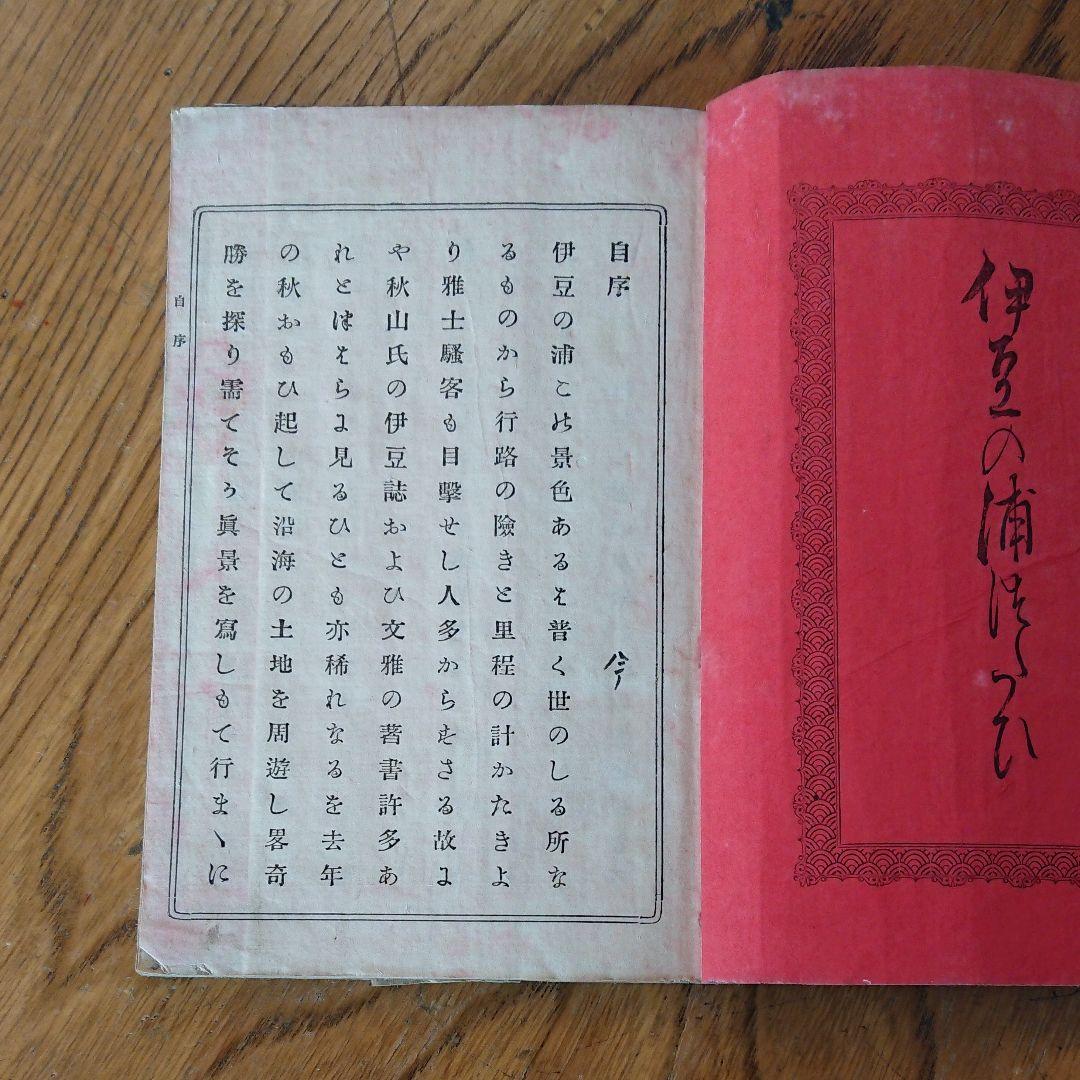 伊豆の浦つたひ
自序
伊豆の浦この景色あるは普く世のしる所な
るものから行路の險きと里程の計かたきよ
り雅士騷客も目擊せし人多からすさる故に
や秋山氏の伊豆誌およひ文雅の著書許多あ
れとつはらに見るひとも亦稀れなるを去年
の秋おもひ起して沿海の土地を周遊し畧奇
勝を探り需てそか眞景を寫しもて行まヽに
自序